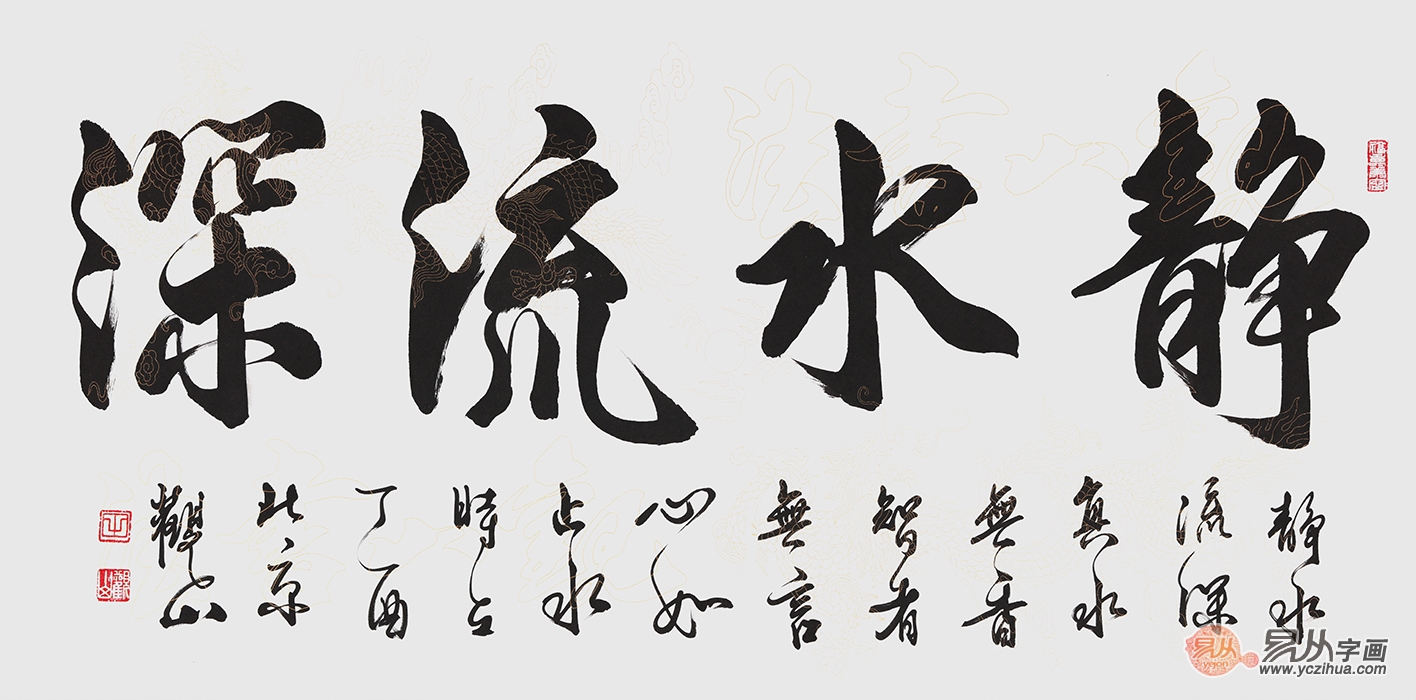 静水流深
静水
流深
真水
無香
智者
無言
心如
止水
時在
丁酉
北京
觀山
易从
yejon
易从字画
www.yczihua.com